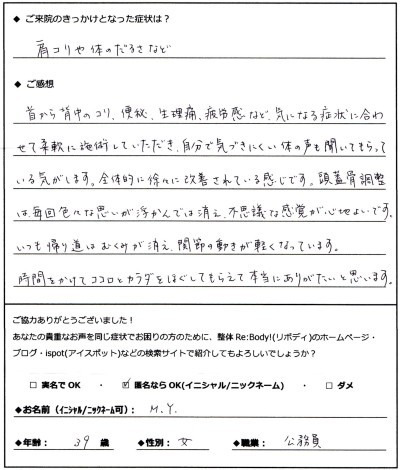 ◆ ご来院のきっかけとなった症状は？
肩コリや体のだるさなど
◆ ご感想
首から背中のコリ、便秘、生理痛、疲労感など、気になる症状に合わ
せて柔軟に施術していただき、自分で気づきにくい体の声も聞いてもらって
いる気がします。全体的に徐々に改善されている感じです。頭蓋骨調整
は、毎回色々な思いが浮かんでは消え、不思議な感覚が心地よいです。
いつも帰り道はむくみが消え、関節の動きが軽くなっています。
時間をかけてココロとカラダをほぐしてもらえて本当にありがたいと思います。
ご協力ありがとうございました！
あなたの貴重なお声を同じ症状でお困りの方のために、整体 Re:Body!(リボディ)のホームページ・
ブログ・ispot(アイスポット)などの検索サイトで紹介してもよろしいでしょうか？
□ 実名でOK ・ ☑ 匿名ならOK(イニシャル/ニックネーム) ・ □ ダメ
◆お名前（イニシャル/ニックネーム可）： M.Y.
◆年齢： 39 歳 ◆性別： 女 ◆職業： 公務員